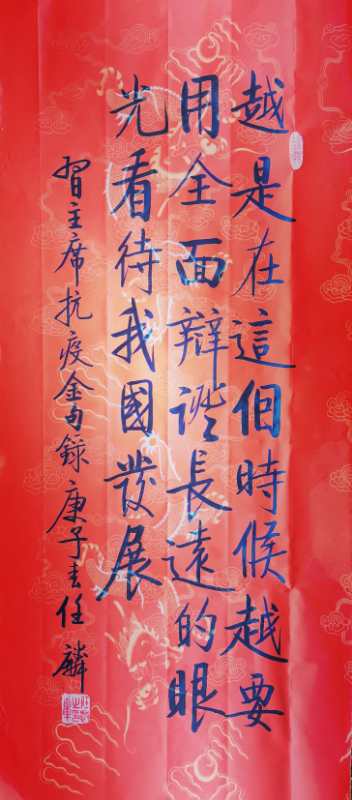 越是在這個時候越要
用全面辯證長遠的眼
光看待我國發展
習主席抗疫金句錄 庚子春任麟